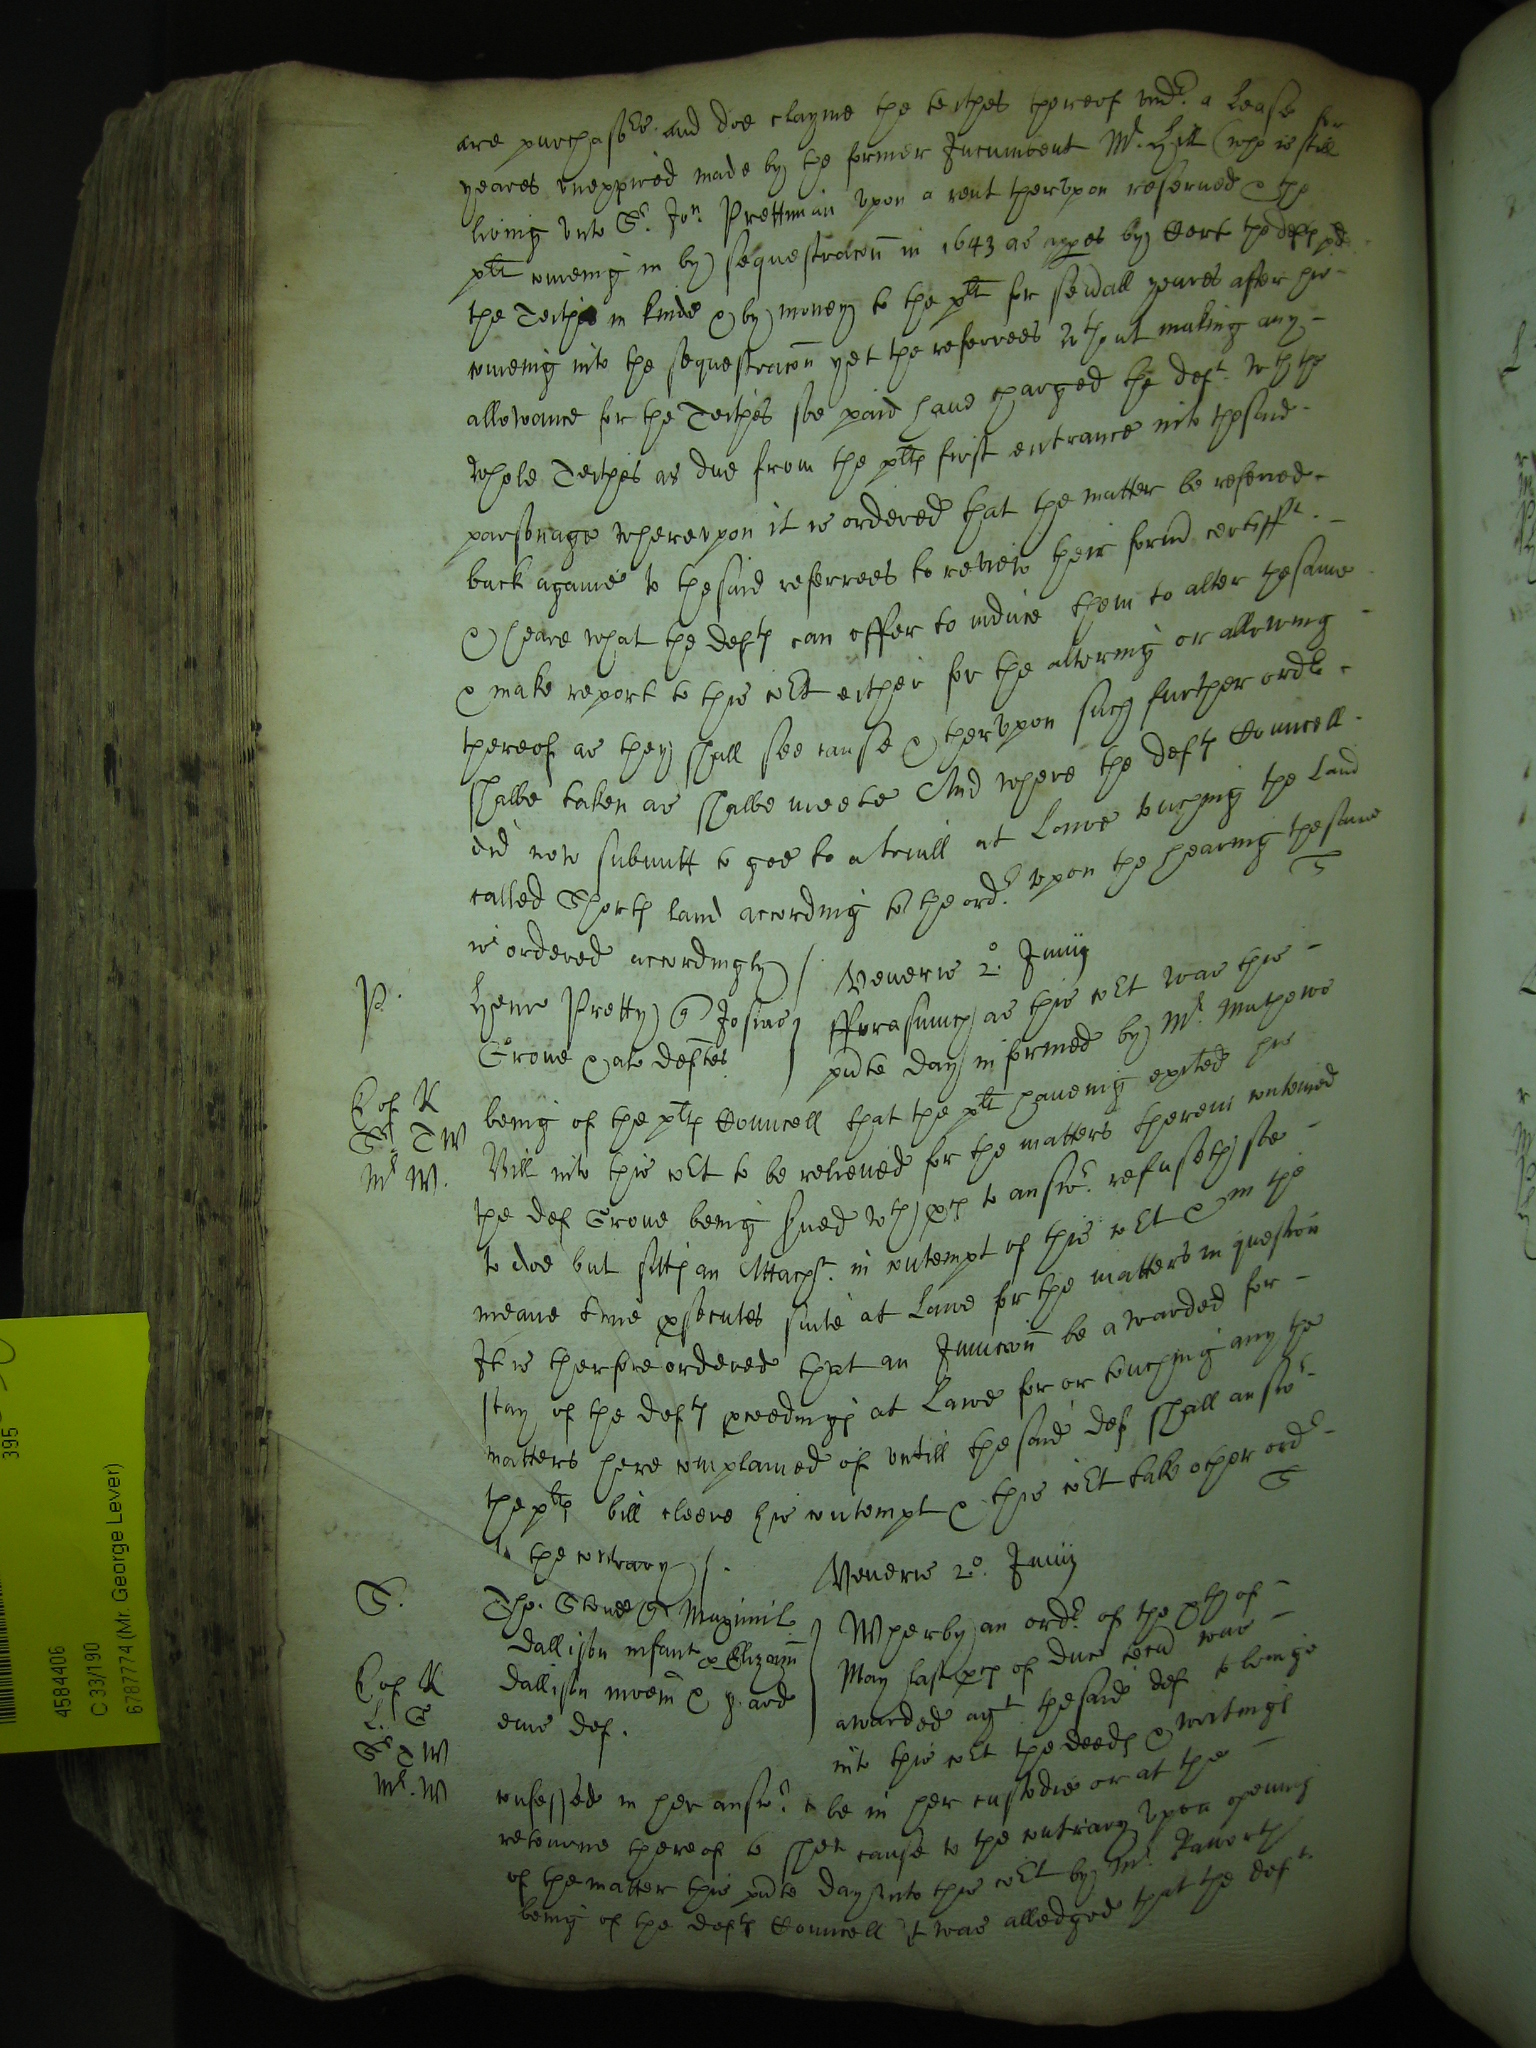 are purchasers and doe clayme the teithes thereof undr. a Lease for
yeares unexpired made by the former Incumbent Mr. Hill (who is still
living unto Sr. Jon. Prettiman upon a rent therupon reserued & the
plt comeing in by sequestracon in 1643 as appes by Cert the defts pd
the Teithes in kinde & by money to the plt for seu'all yeares after his
comeing into the sequestracon yet the referrees wthout making any
allowance for the Teithes soe paid haue charged the deft. wth the
whole Teithes as due from the plts first entrance into thesaid
parsonage whereupon it is ordered that the matter be referred
back againe to thesaid referrees to review their form'd certifft.
& heare what the defts can offer to induce them to alter thesame
& make report to this Cot either for the altering or allowing
thereof as they shall see cause & therupon such further ordr
shalbe taken as shalbe meete And where the defts Councell
did now submitt to goe to a triall at Lawe touching the Land
called Short land according to the ordr. upon the hearing thesame
is ordered accordingly / S
P. Veneris 2o. Junij
Henr Pretty q Josias
Groue & als deftes
fforasmuch as this Cot was this
p'nte day informed by Mr. Mathewes
C of K
Sr. T W
Mr W.
being of the plts Councell that the plt haueing exited his
Bill into this Cot to be releiued for the matters therein conteined
the def Groue being s'ued wth p'ces to answr. refuseth soe
to doe but sitts an Attachmt. in contempt of this Cot & in the
meane time p'secutes suite at Lawe for the matters in question
It is therfore ordered that an Iniuncon be awarded for
stay of the defts p'ceedings at Lawe for or touching any the
matters here complained of untill thesaid def shall answr
the plts bill cleere his contempt & this Cot take other ordr
to the contrary /. S
S. Veneris 2o. Junij
Tho. Stone q Maximil.
Dallison infant & Elizabth
Dallison & gard
eius def.
Wherby an ordr. of the xth of
May last p'ces of duces tecu' was
awarded agt thesaid def to bringe
into this Cot the deeds & writings
C of K
L. S
Sr T W
Mr. W
confessed in her answr. to be in her custodie or at the
retourne thereof to shew cause to the contrary Upon opening
of the matter this p'nte day unto this Cot by Mr. Raworth
being of the defts Councell it was alledged that the deft.
395
4584406
C 33/190
6787774 (Mr. George Lever)